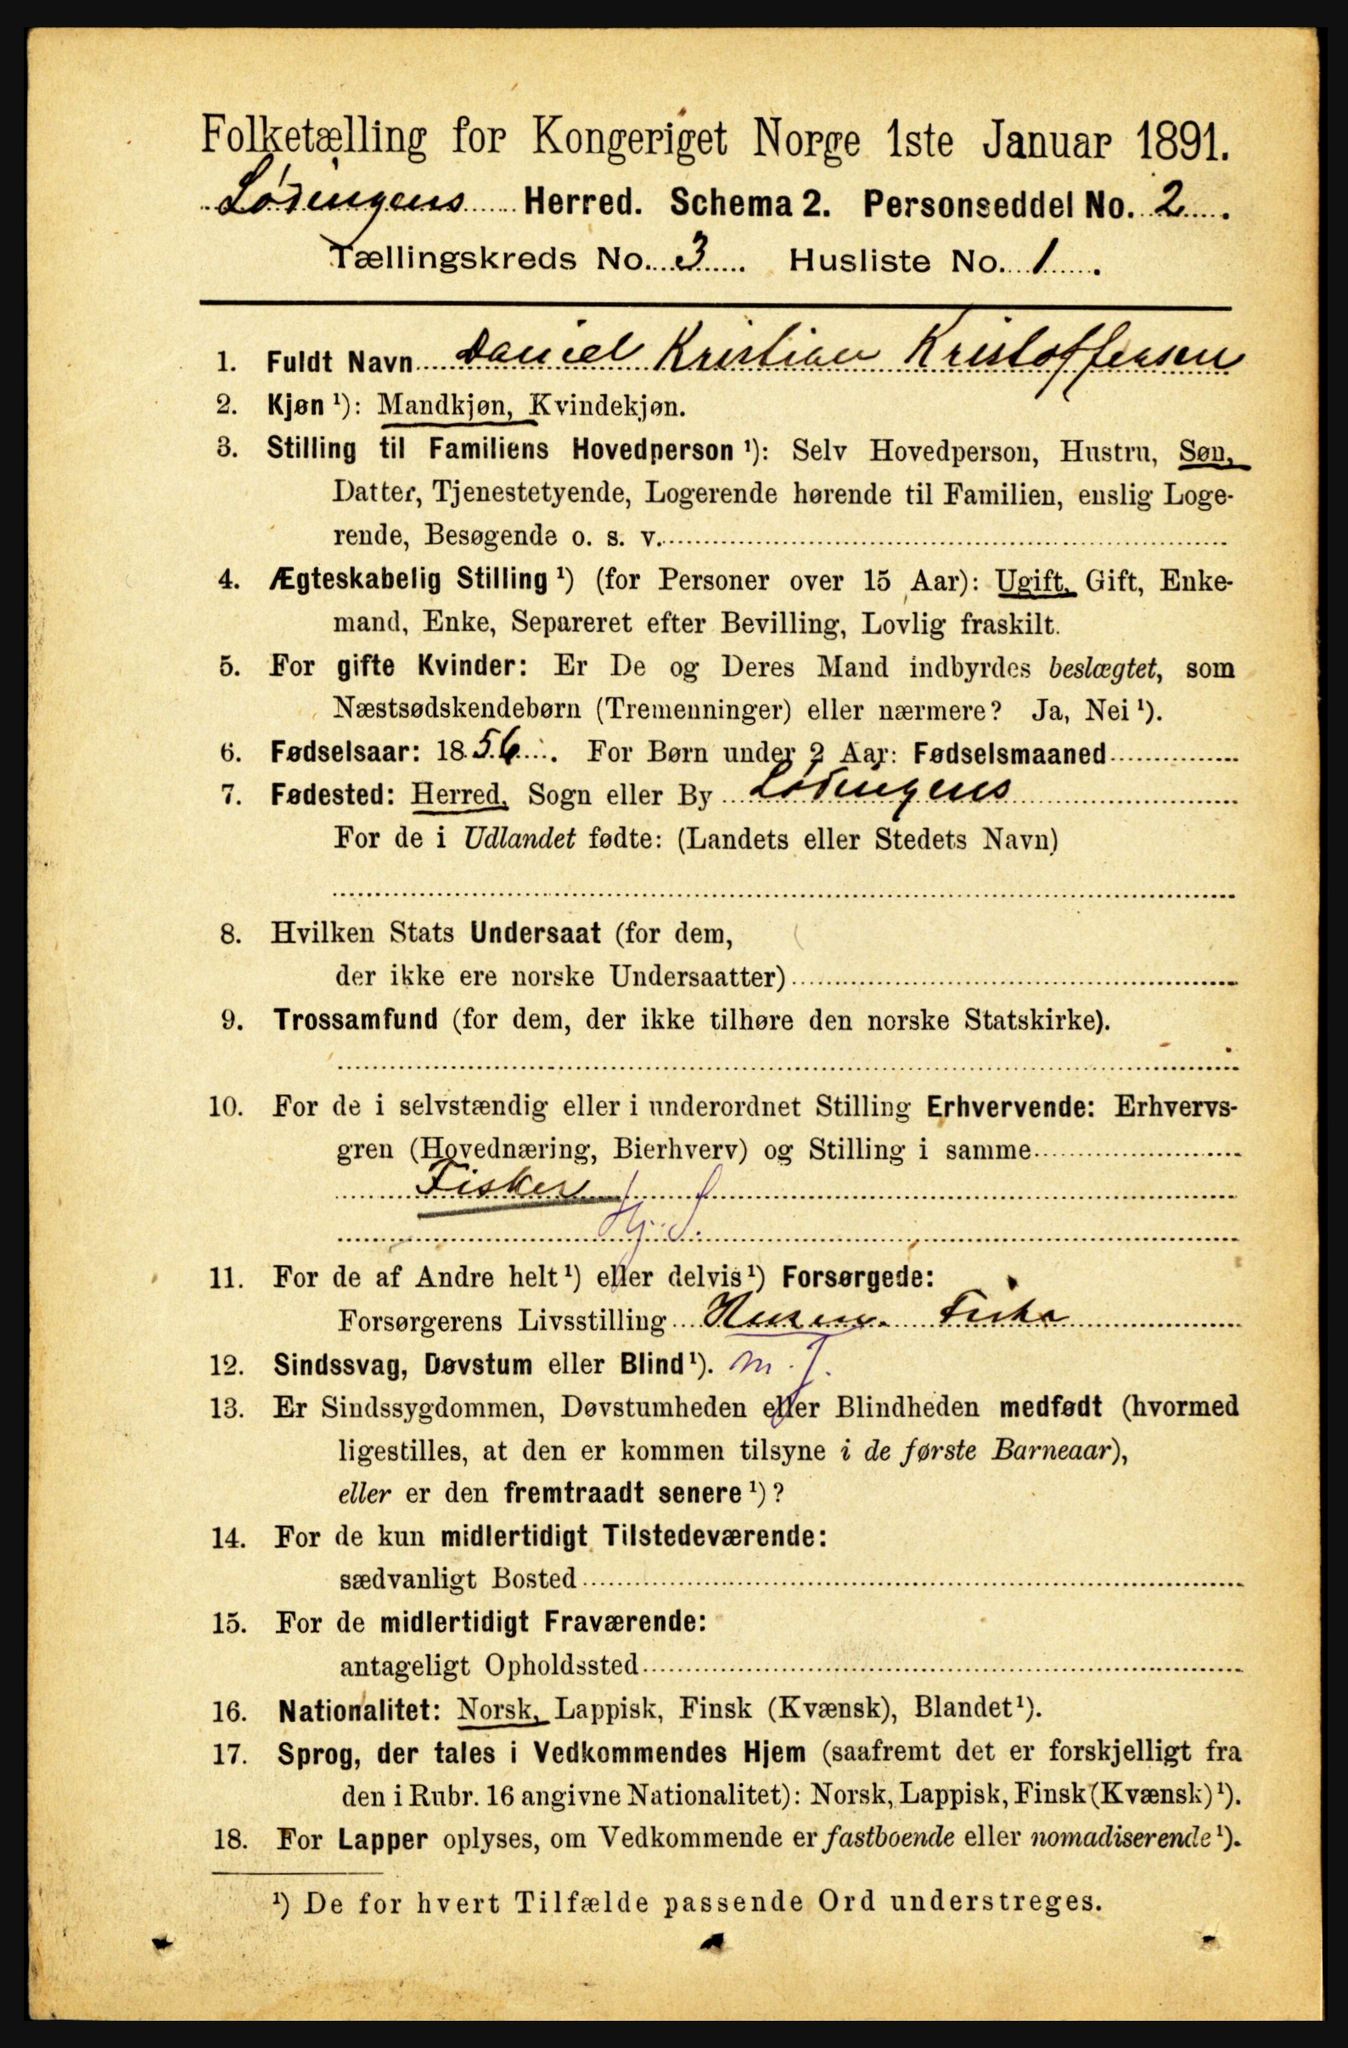 Folketælling for Kongeriget Norge 1ste Januar 1891.
Lødingens Herred. Schema 2. Personseddel No. 2
Tællingskreds No. 3 Husliste No. 1
1. Fuldt Navn Daniel Kristian Kristoffersen
2. Kjøn ¹): Mandkjøn, Kvindekjøn.
3. Stilling til Familiens Hovedperson ¹): Selv Hovedperson, Hustru, Søn,
Datter, Tjenestetyende, Logerende hørende til Familien, enslig Loge-
rende, Besøgende o. s. v.
4. Ægteskabelig Stilling ¹) (for Personer over 15 Aar): Ugift, Gift, Enke-
mand, Enke, Separeret efter Bevilling, Lovlig fraskilt.
5. For gifte Kvinder: Er De og Deres Mand indbyrdes beslægtet, som
Næstsødskendebørn (Tremenninger) eller nærmere? Ja, Nei ¹).
6. Fødselsaar: 1856. For Børn under 2 Aar: Fødselsmaaned
7. Fødested: Herred, Sogn eller By Lødingens
For de i Udlandet fødte: (Landets eller Stedets Navn)
8. Hvilken Stats Undersaat (for dem,
der ikke ere norske Undersaatter)
9. Trossamfund (for dem, der ikke tilhøre den norske Statskirke).
10. For de i selvstændig eller i underordnet Stilling Erhvervende: Erhvervs-
gren (Hovednæring, Bierhverv) og Stilling i samme
Fisker
Hj. S.
11. For de af Andre helt ¹) eller delvis ¹) Forsørgede:
Forsørgerens Livsstilling
12. Sindssvag, Døvstum eller Blind ¹).
13. Er Sindssygdommen, Døvstumheden eller Blindheden medfødt (hvormed
ligestilles, at den er kommen tilsyne i de første Barneaar),
eller er den fremtraadt senere ¹)?
14. For de kun midlertidigt Tilstedeværende:
sædvanligt Bosted
15. For de midlertidigt Fraværende:
antageligt Opholdssted
16. Nationalitet: Norsk, Lappisk, Finsk (Kvænsk), Blandet ¹).
17. Sprog, der tales i Vedkommendes Hjem (saafremt det er forskjelligt fra
den i Rubr. 16 angivne Nationalitet): Norsk, Lappisk, Finsk (Kvænsk) ¹).
18. For Lapper oplyses, om Vedkommende er fastboende eller nomadiserende ¹).
¹) De for hvert Tilfælde passende Ord understreges.